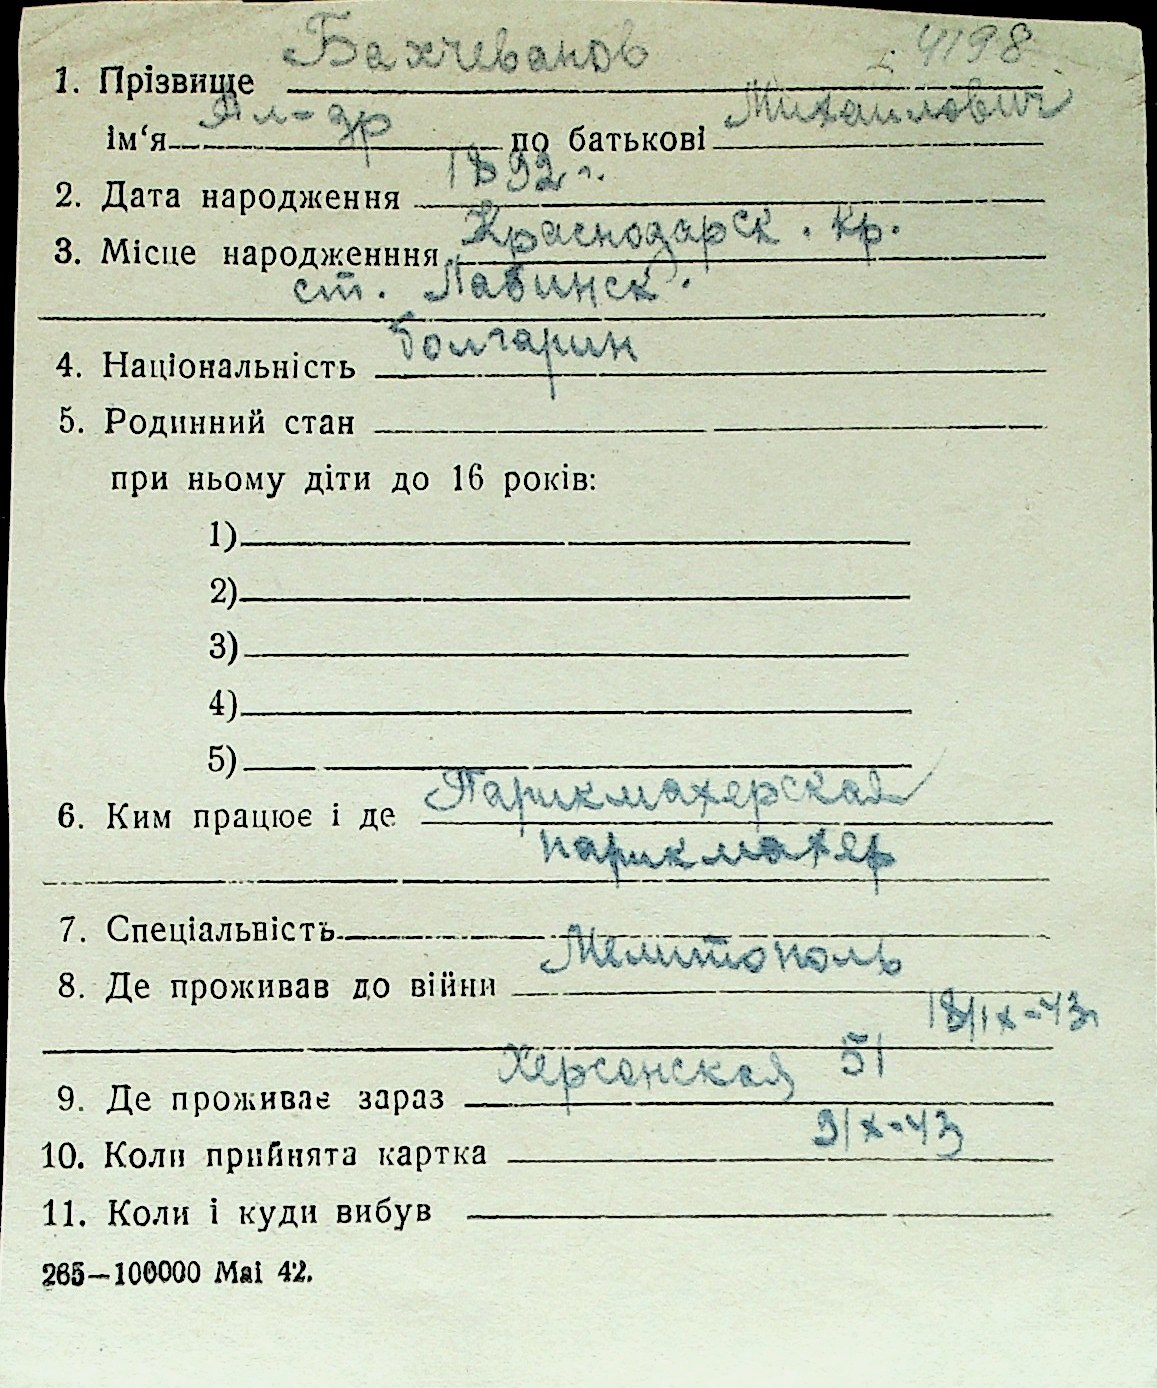 Бахчеванов 4198
1. Прізвище
Ал-др Михайлович
ім‘я по батькові
1892 г.
2. Дата народження
Краснодарск. кр.
3. Місце народженння
ст. Лабинск.
болгарин
4. Національність
5. Родинний стан
при ньому діти до 16 років:
1)
2)
3)
4)
5)
Парикмахерская
6. Ким працює і де
парикмахер
7. Спеціальність
Мелитополь
8. Де проживав до війни
18/IX-43
Херсонская 51
9. Де проживає зараз
9/X-43
10. Коли прийнята картка
11. Коли і куди вибув
265—100000 Mai 42.